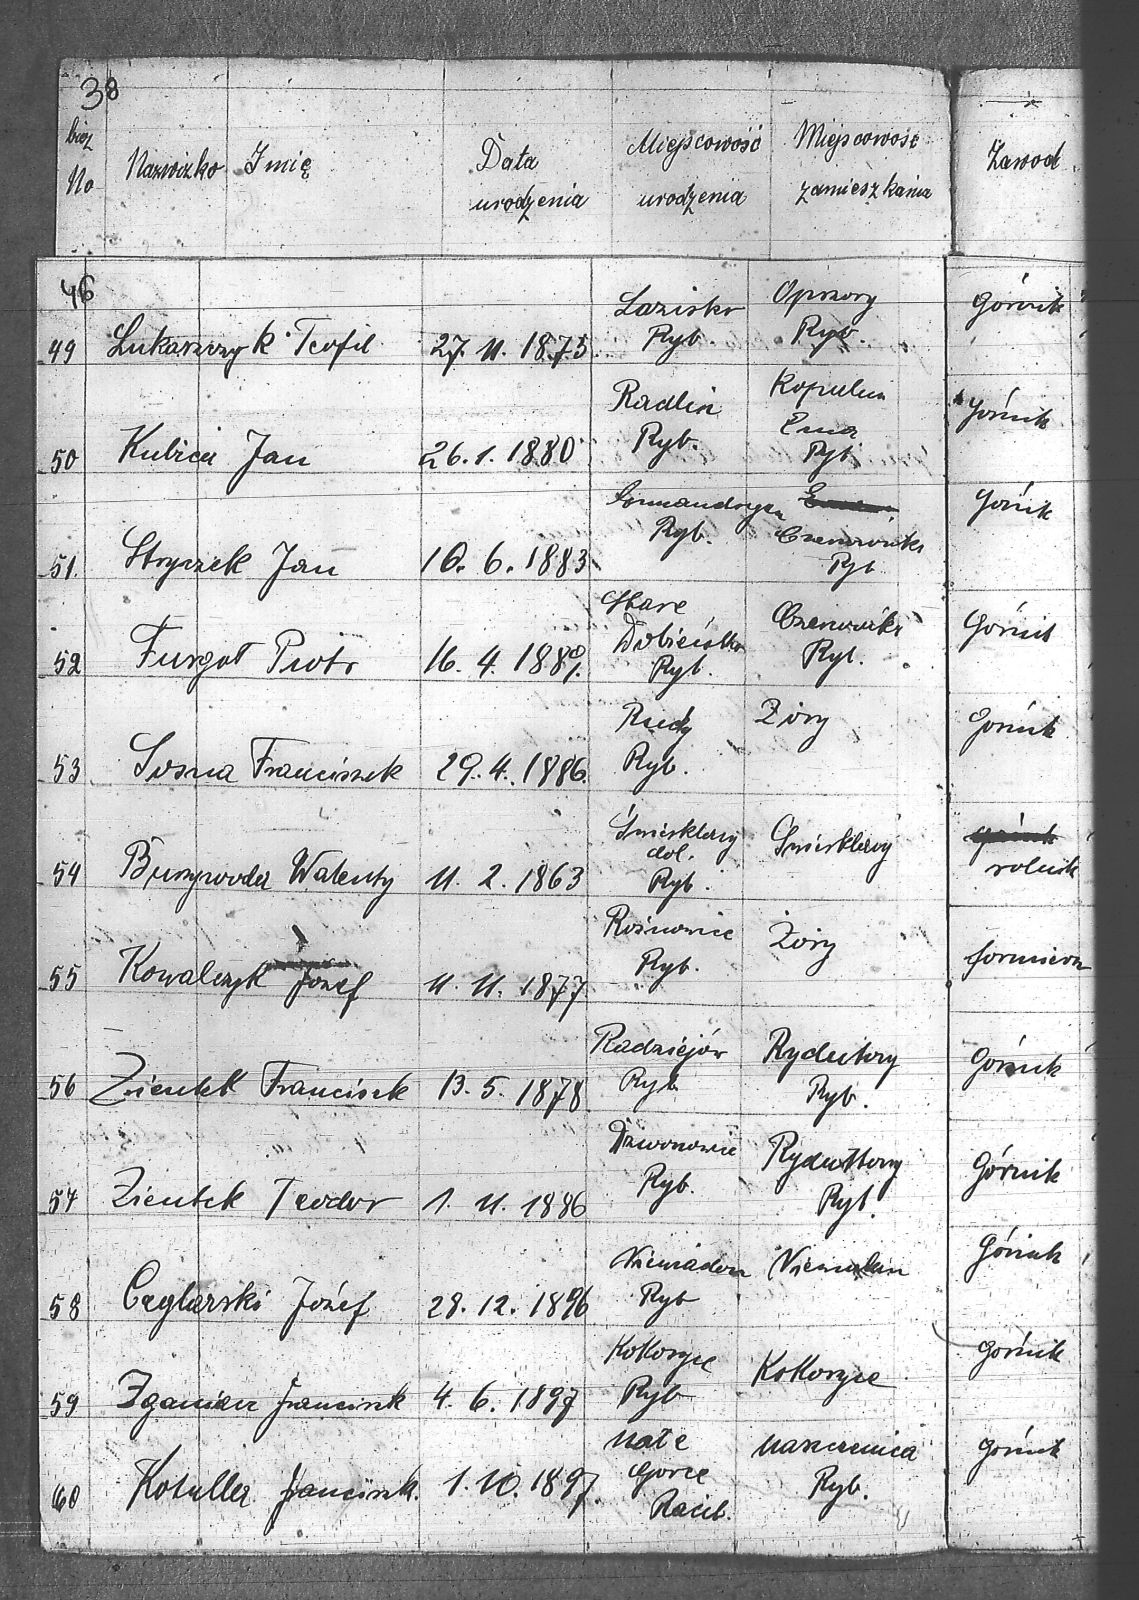 38
bież No Nazwizko Imię Data urodzenia Miejscowość urodzenia Miejscowość zamieszkania Zawod
46
49 Lukaszczyk Teofil 27. 11. 1875 Lazisko Ryb. Ryb. Górnik
50 Kubica Jan 26. 1. 1880 Radlin Ryb. Kopalnia Ema Ryb Górnik
51. Stryczek Jan 10. 6. 1883 Ryb. Czerwionka Ryb Górnik
52 Furgoł Piotr 16. 4. Stare Dubieńsko Ryb. Czerwionka Ryb. Górnik
53 Sosna Franciszek 29. 4. 1886. Rudy Ryb. Żory Górnik
54 Walenty 11. 2. 1863 dol. Ryb. rolnik
55 Kowalczyk Józef 11. 11. 1877 Ryb. Żory
56 Zientek Francisek 13. 5. 1878 Radziejów Ryb Rydułtowy Ryb. Górnik
57 Zientek Teodor 1. 11. 1886 Dzwonowice Ryb. Rydułtowy Ryb. Górnik
58 Ceglarski Józef 28. 12. 1896 Niewiadom Ryb Niewiadom Górnik
59 Franciszek 4. 6. 1897 Kokoszyce Ryb Kokoszyce Górnik
60 Kotulla Franciszek. 1. 10. 1897. Małe Gorce Racib. Marcinnica Ryb. Górnik